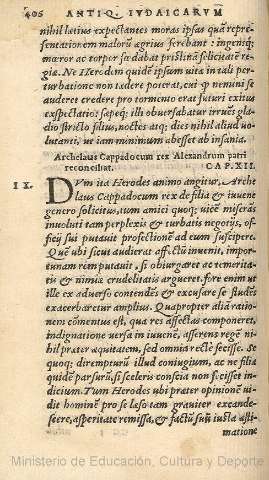 406 ANTIQ. IVDAICARVM
nihil lætius expectantes moras ipsas quã repræ-
sentationem malorũ ægrius ferebant: ingeniq;
mæror ac torpor sædabat pristina felicitate re-
gia. Ne Herodem quidẽ ipsum vita in tali per-
turbatione non tædere poterat, cui nemini se
auderet credere pro tormento erat futuri exitus
exspectatio: sæpeq; illi obversabatur irruẽs gla-
dio stricto filius, noctes atq; dies nihil aliud vo-
lutanti, ut iam minimum abesset ab insania.
Archelaus Cappadocum rex Alexandrum patri
reconciliat. CAP. XII.
IX. DVm ita Herodes animo angitur, Arche
laus Cappadocum rex de filia & iuvene
genero solicitus, tum amici quoq; vicẽ miserãs
involuti tam perplexis & turbatis negotijs, of-
ficij sui putavit profectionẽ ad eum suscipere.
Quẽ ubi sicut audierat affectũ invenit, impor-
tunam rem putavit, si obiurgaret ac temerita-
tis & nimiæ crudelitatis argueret. fore enim ut
ille ex adverso contendẽs & excusare se studẽs
exacerbaretur amplius. Quapropter aliã ratio-
nem cõmentus est, qua res affectas componeret,
indignatione versa in iuvenẽ, asserens regẽ ni-
hil præter æquitatem, sed omnia rectè fecisse. Se
quoq; dirempturũ illud coniugium, ac ne filiæ
quidẽ parsurũ, si sceleris conscia non fecisset in-
dicium. Tum Herodes ubi præter opinionẽ vi-
dit hominẽ pro se læso tam graviter excande-
scere, asperitate remissa, & factũ suũ iusta æsti-
matione
Ministerio de Educación, Cultura y Deporte